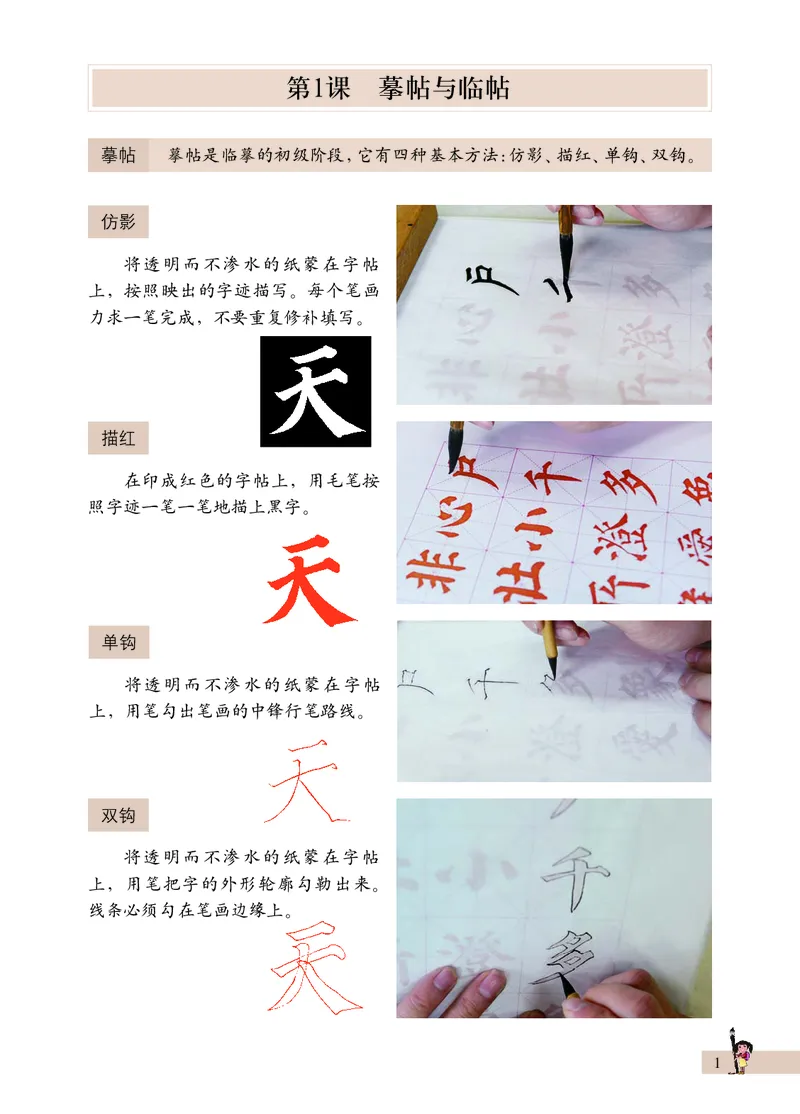 第1课 摹帖与临帖
摹帖 摹帖是临摹的初级阶段，它有四种基本方法：仿影、描红、单钩、双钩。
仿影
将透明而不渗水的纸蒙在字帖
上，按照映出的字迹描写。每个笔画
力求一笔完成，不要重复修补填写。
天
描红
在印成红色的字帖上，用毛笔按
照字迹一笔一笔地描上黑字。
天
单钩
将透明而不渗水的纸蒙在字帖
上，用笔勾出笔画的中锋行笔路线。
天
双钩
将透明而不渗水的纸蒙在字帖
上，用笔把字的外形轮廓勾勒出来。
线条必须勾在笔画边缘上。
天
户
多
心小澄
非壮所
户千多兔
心小澄爱
非壮所
户千
多
澄爱
千
小
多
澄
1